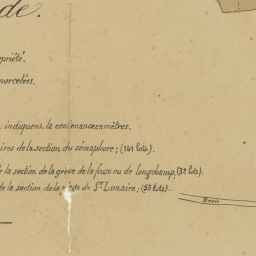 de.
opriété.
morcelées.
indiquent la contenance en mètres.
de la section du sémaphore; (141 lots).
de la section de la grève de la fosse ou de longchamp, (31 lots).
de la section de la de St Lunaire; (53 lots).